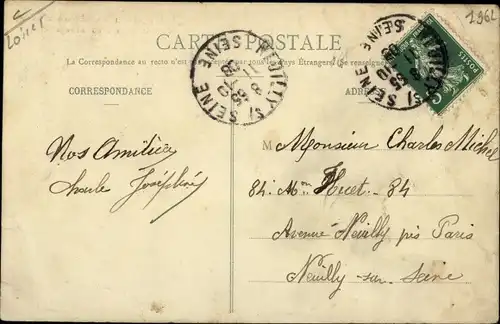 Loiret
1962
CARTE POSTALE
La Correspondance au recto n'est pas
tous les Pays Étrangers (Se renseigner
CORRESPONDANCE
NEUILLY S/ SEINE
NEUILLY S/ SEINE
POSTES
Nos Amitiés
Joséphine
M Monsieur Charles Michel
84. Mon Huet - 84
Avenue Neuilly près Paris
Neuilly-sur-Seine